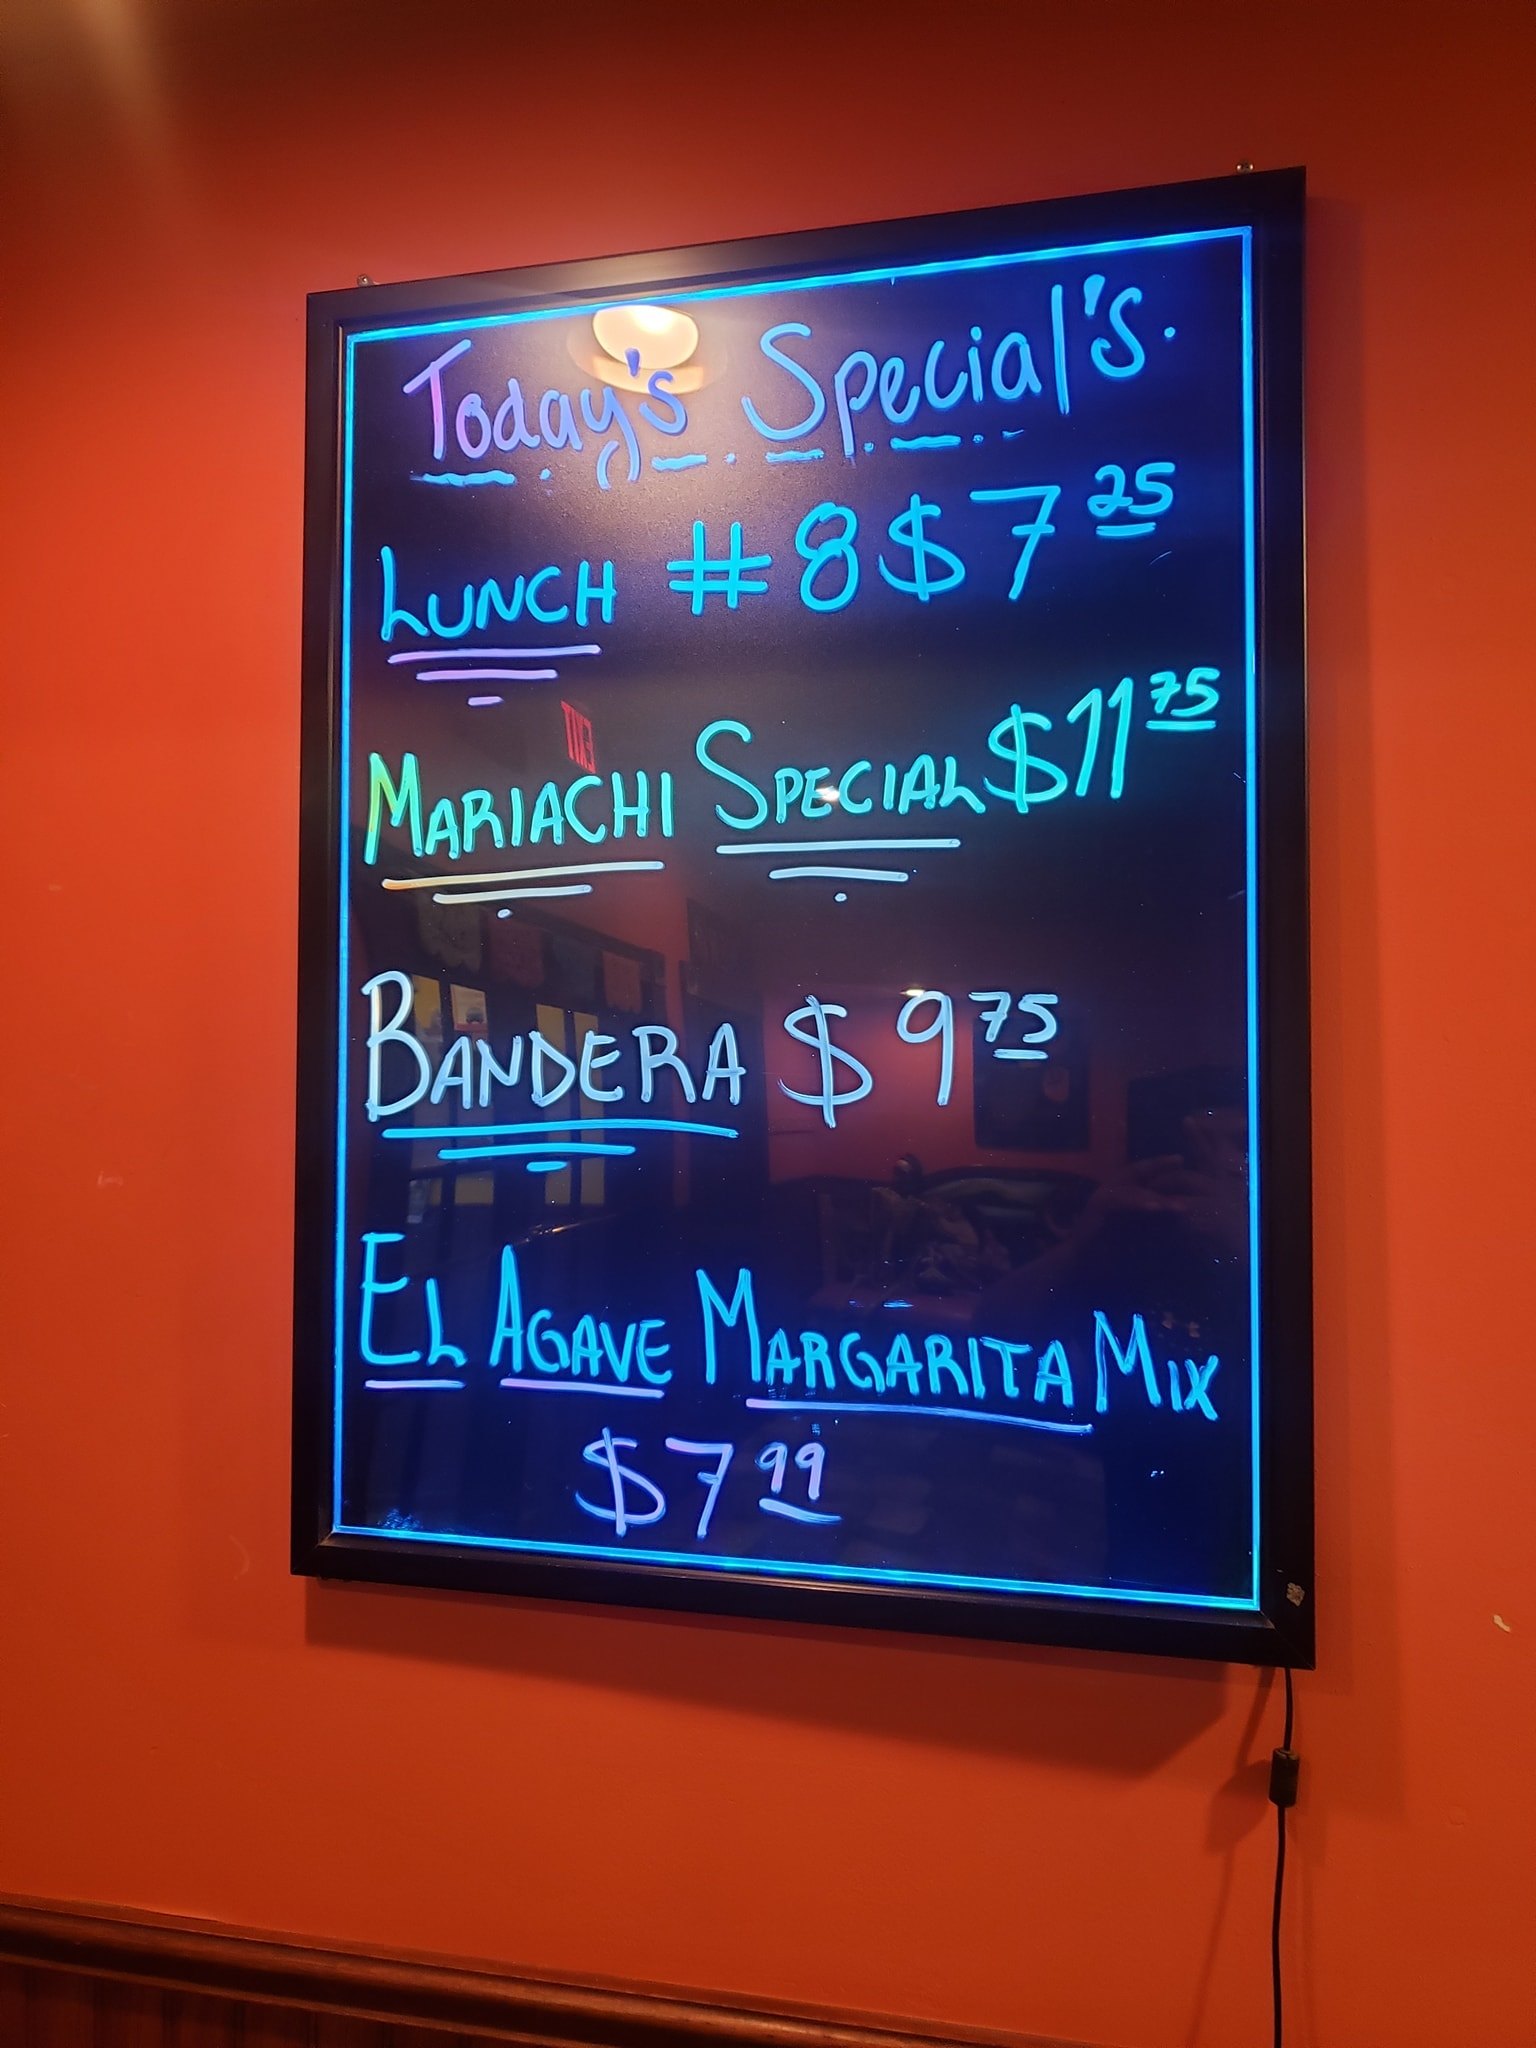 Today's Special's.
LUNCH #8 $7 25
MARIACHI SPECIAL $11 75
BANDERA $9 75
EL AGAVE MARGARITA MIX
$7 99
EXIT